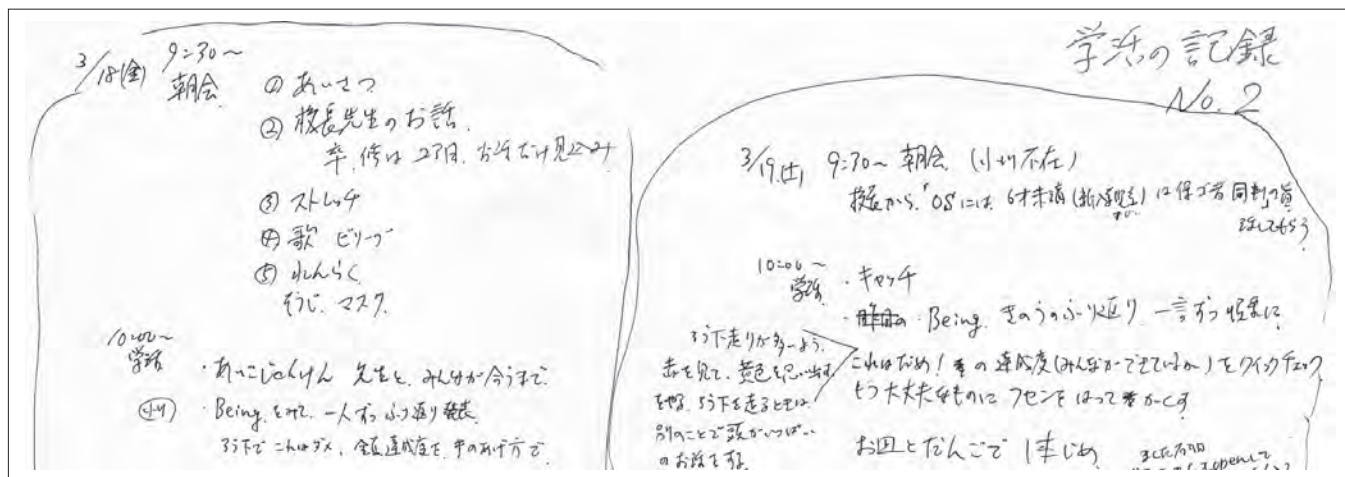 学活の記録
No. 2
3/18(金) 9:30～
朝会
① あいさつ
② 校長先生のお話.
卒、修は 27日.
③ ストレッチ
④ 歌 ビリーブ
⑤ れんらく
そうじ. マスク.
10:00～
学活
・あっこじゃんけん 先生と、みんなが今うまで.
小川
・Being. をみて. 一人ずつふり返り発表.
ろう下で これはダメ. 全員達成度を. 手のあげ方で.
3/19(土) 9:30～ 朝会 (小川不在)
校長から.「OS」には、6才未満 は保ゴ者同伴の
話してもらう
10:00～
学活
・キャッチ
・Being. きのうのふり返り 一言ずつ
ろう下走りが多いよう.
赤を見て、黄色を思い出す
をやる. ろう下を走るときは、
別のことで頭がいっぱい
のお話をする.
これはだめ! の 達成度(みんなができているか)をクイックチェック
もう大丈夫なものに フセンを はって かくす
お皿とだんごで 1本じめ